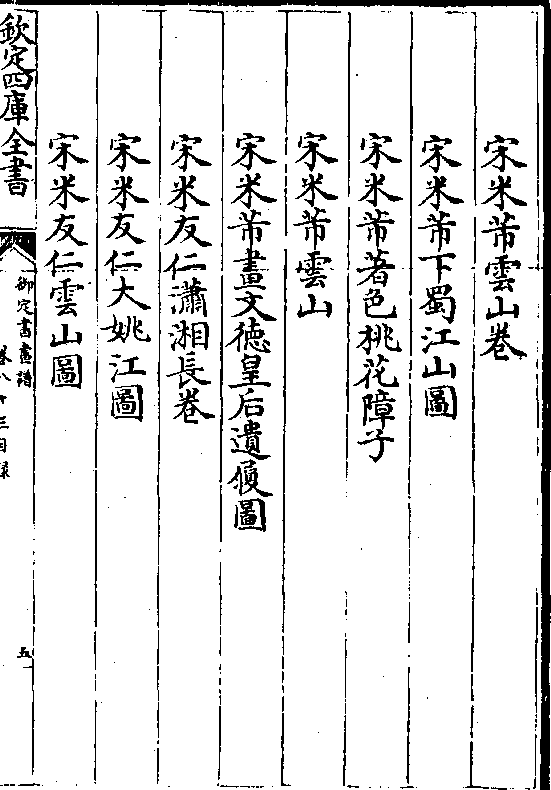 宋米芾雲山卷
宋米芾下蜀江山圖
宋米芾著色桃花障子
宋米芾雲山
宋米芾畫文德皇后遺履圖
宋米友仁瀟湘長卷
宋米友仁大姚江圖
宋米友仁雲山圖
欽定四庫全書
御定書畫譜
卷八十三目錄
五